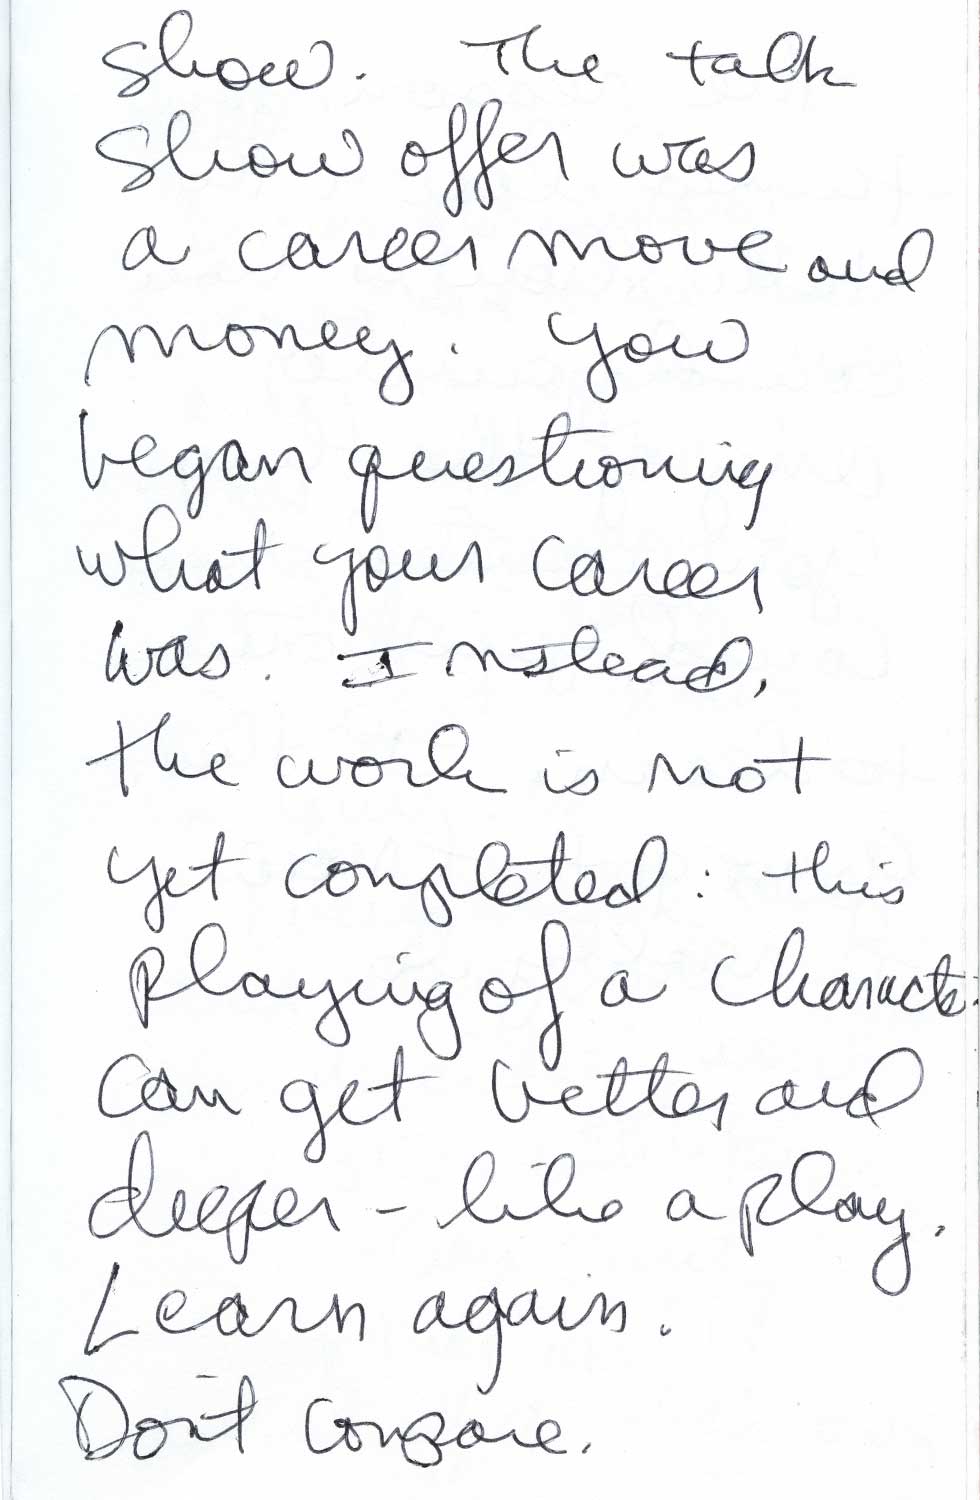 show. The talk
show offer was
a career move and
money. You
began questioning
what your career
was. Instead,
the work is not
yet completed: this
playing of a charact
can get better and
deeper - like a play.
Learn again.
Don't compare.